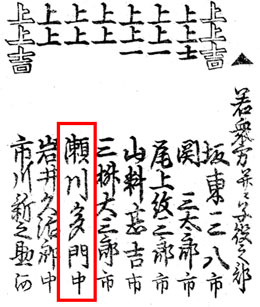 ▲若衆方并ニ子役之部
上上吉 坂東三八 市
上上士 関三太郎 市
上上一 尾上紋三郎 市
上上一 山科甚吉 市
上上 三枡大三郎 市
上上 瀬川多門 中
上上 岩井 中
上上吉 市川新之助 河